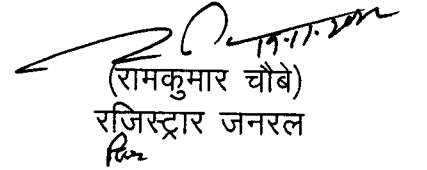 19.11.2022
(रामकुमार चौबे)
रजिस्ट्रार जनरल